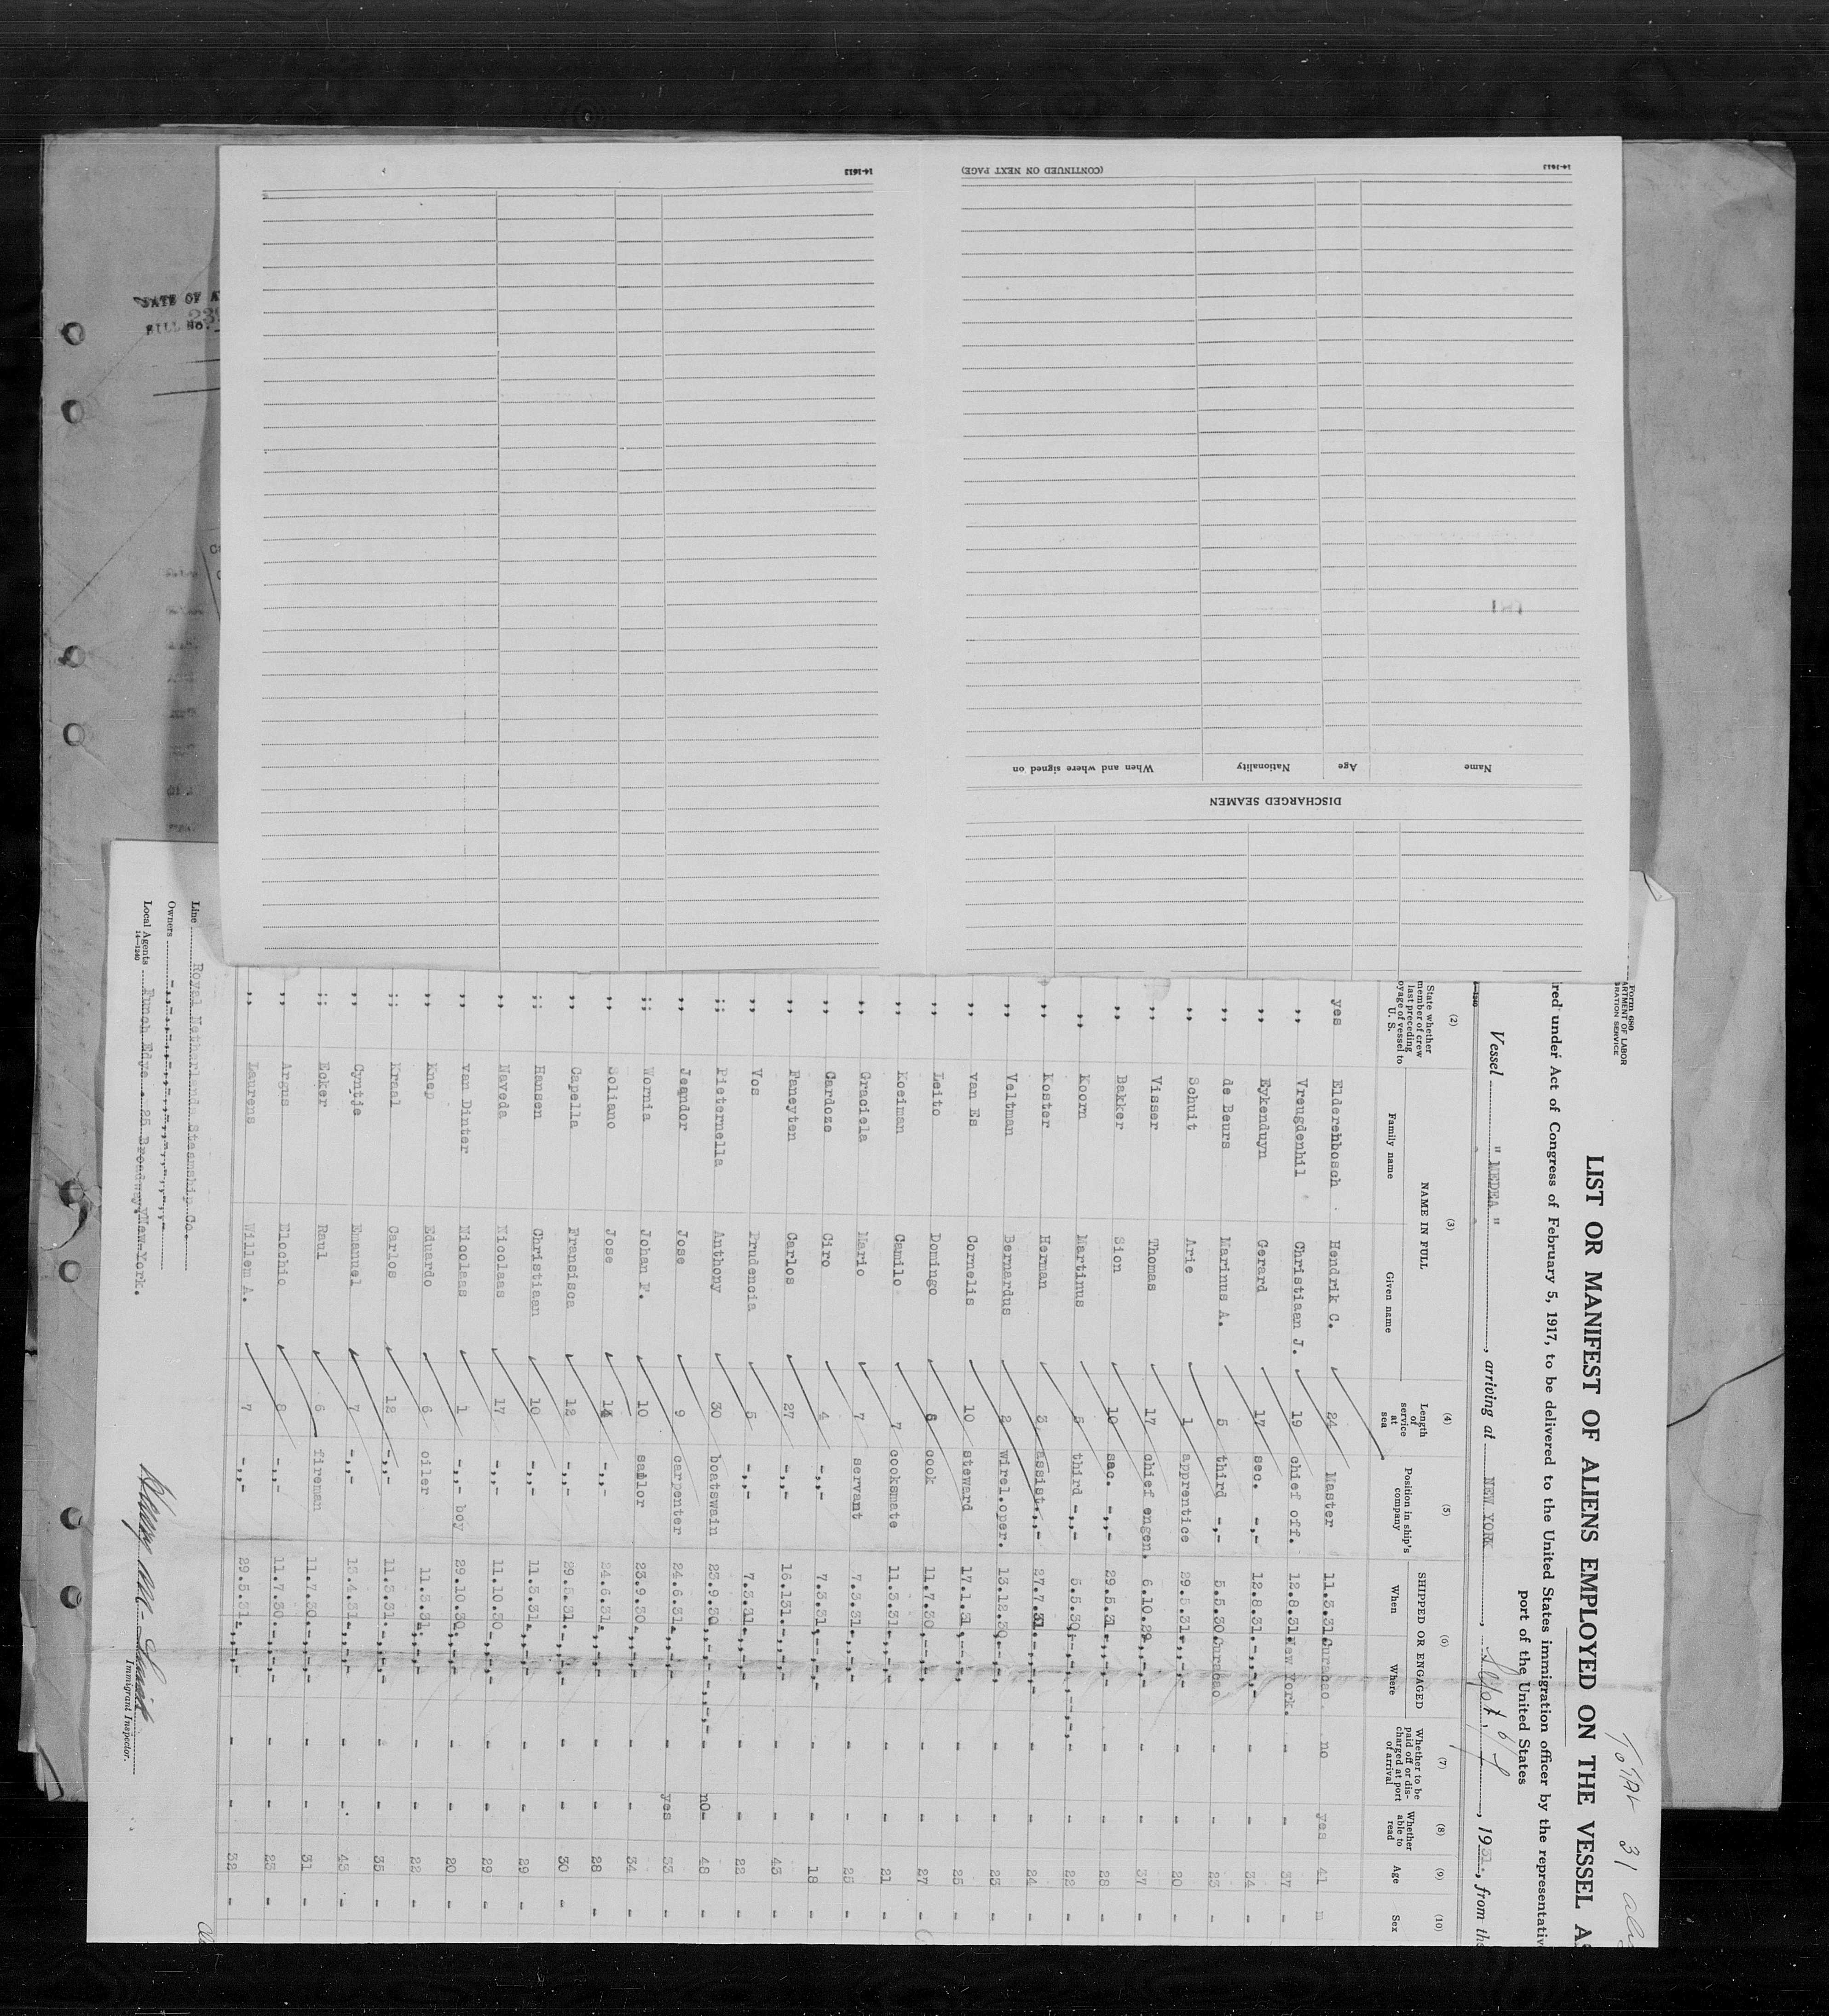 14-1612
(CONTINUED ON NEXT PAGE)
14-1612
DISCHARGED SEAMEN
Name Age Nationality When and where signed on
DATE OF A
BILL No. 239
TOTAL 31
Form 680
ARTMENT OF LABOR
GRATION SERVICE
LIST OR MANIFEST OF ALIENS EMPLOYED ON THE VESSEL AS
red under Act of Congress of February 5, 1917, to be delivered to the United States immigration officer by the representativ
port of the United States
Vessel " MEDEA ", arriving at NEW YORK, Sept. , 1931., from the
(2) (3) (4) (5) (6) (7) (8) (9) (10)
State whether member of crew last preceding oyage of vessel to U. S.
NAME IN FULL
Family name Given name
Length of service at sea
Position in ship's company
SHIPPED OR ENGAGED
When Where
Whether to be paid off or discharged at port of arrival
Whether able to read
Age
Sex
yes Elderenbosch Hendrik C. 24 Master 11.3.31. Curacao no yes 41 m
,, Vreugdenhil Christiaan J. 19 chief off. 12.8.31. New York. - - 37 -
,, Eykenduyn Gerard 17 sec. -,- 12.8.31. -,-,- - - 34 -
,, de Beurs Marinus A. 5 third -,- 5.5.30. Curacao - - 23 -
,, Schuit Arie 1 apprentice 29.5.31. -,,- - - 20 -
,, Visser Thomas 17 chief engen. 6.10.29. -,,- - - 37 -
,, Bakker Sion 10 sec. -,,- 29.5.31. -,,- - - 28 -
,, Koorn Martinus 5 third -,,- 5.5.30. -,,- - - 22 -
,, Koster Herman 3 assist. -,,- 27.7.31. -,,- - - 24 -
,, Veltman Bernardus 2 wirel.oper. 13.12.30. -,,- - - 23 -
,, van Es Cornelis 10 steward 17.1.31. -,,- - - 25 -
,, Leito Domingo 6 cook 11.7.30. -,,- - - 27 -
,, Koeiman Camilo 7 cooksmate 11.3.31. -,,- - - 21 -
,, Graciela Mario 7 servant 7.3.31. -,,- - - 25 -
,, Cardoze Ciro 4 -,,- 7.3.31. -,,- - - 18 -
,, Paneyten Carlos 27 -,,- 16.1.31. -,,- - - 43 -
,, Vos Prudencia 5 -,,- 7.3.31. -,,- - - 22 -
,, Pieternella Anthony 30 boatswain 23.9.30. -,,- - no- 48 -
,, Jeandor Jose 9 carpenter 24.6.31. -,,- yes 33 -
,, Wornia Johan F. 10 sailor 23.9.30. -,,- - - 34 -
,, Soliano Jose 14 -,,- 24.6.31. -,,- - - 28 -
,, Capella Fransisca 12 -,,- 29.5.31. -,,- - - 30 -
,, Hansen Christiaan 10 -,,- 11.3.31. -,,- - - 29 -
,, Naveda Nicolaas 17 -,,- 11.10.30 -,,- - - 29 -
,, van Dinter Nicolaas 1 -,,- boy 29.10.30. -,,- - - 20 -
,, Knep Eduardo 6 oiler 11.3.31. -,,- - - 22 -
,, Kraal Carlos 12 -,,- 11.3.31. -,,- - - 35 -
,, Cyntje Emanuel 7 -,,- 13.4.31. -,,- - - 43 -
,, Ecker Raul 6 fireman 11.7.30. -,,- - - 31 -
,, Argus Elochio 8 -,,- 11.7.30. -,,- - - 23 -
,, Laurens Willem A. 7 -,,- 29.5.31. -,,- - - 32 -
Line Royal Netherlands Steamship Co.
Owners -,,-,,-,,-,,-,,-
Local Agents Funch Edye . 25 Broadway New-York.
14-1240
Immigrant Inspector.